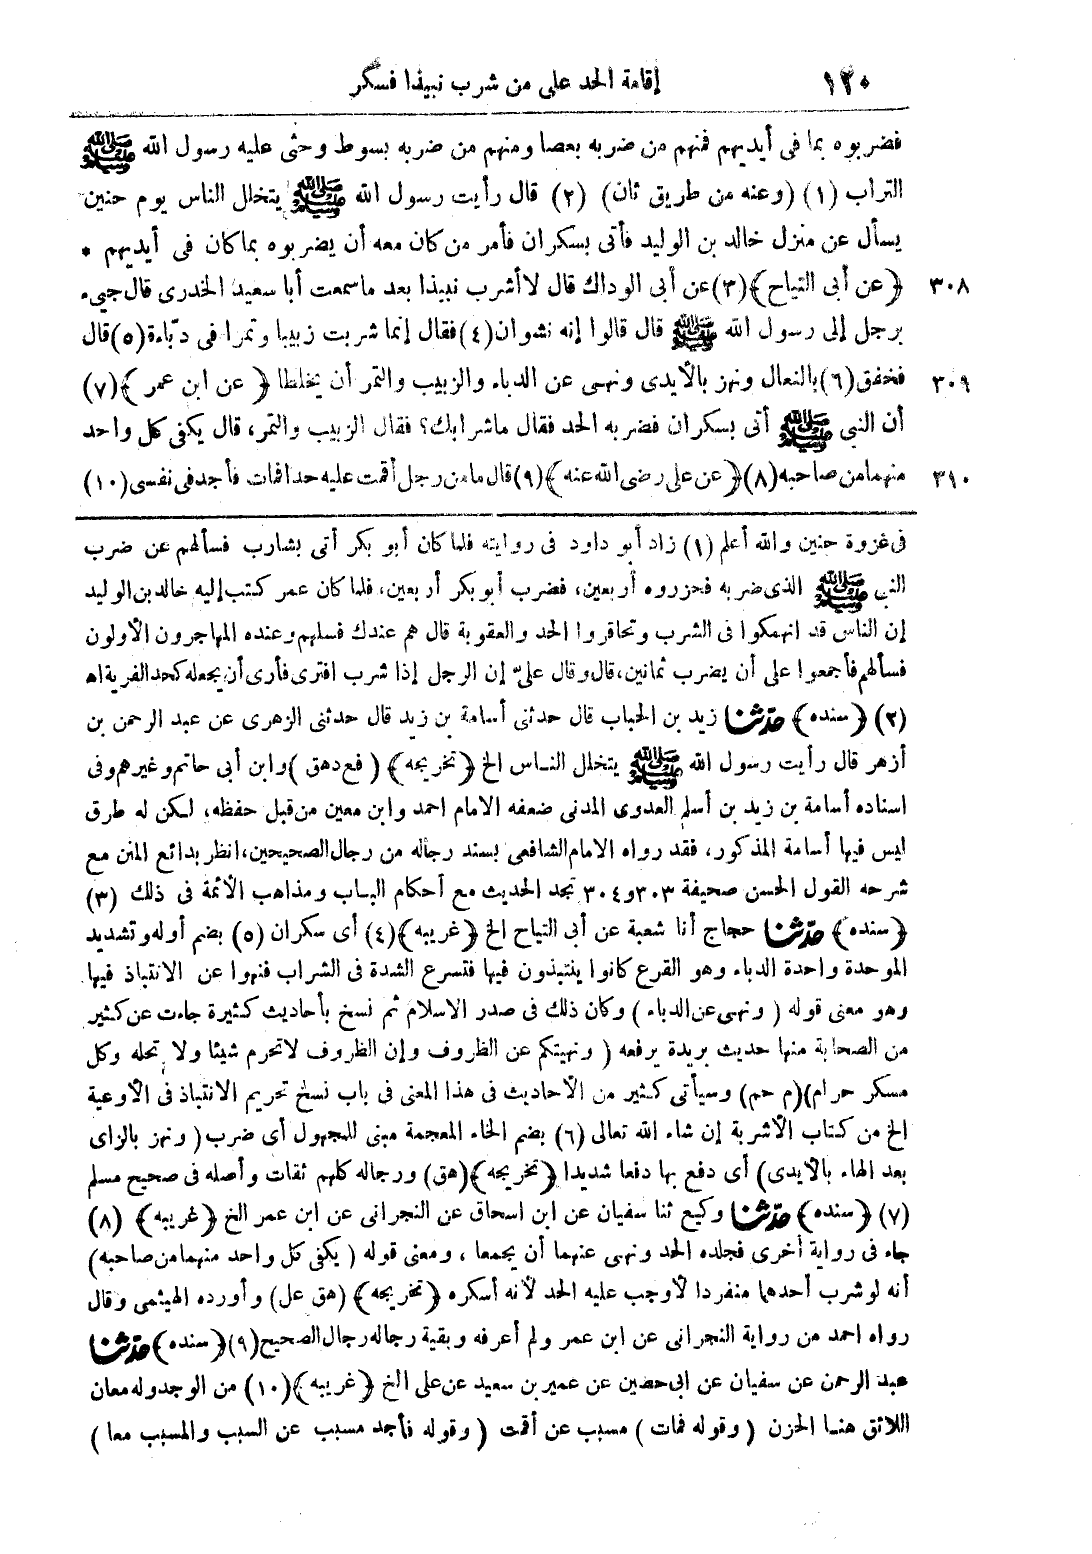 ١٢٠ إقامة الحد على من شرب نبيذا فسكر
فضربوه بما فى أيديهم فمنهم من ضربه بعصا ومنهم من ضربه بسوط وحثى عليه رسول الله ﷺ
التراب (١) (وعنه من طريق ثان) (٢) قال رأيت رسول الله ﷺ يتخلل الناس يوم حنين
يسأل عن منزل خالد بن الوليد فأتى بسكران فأمر من كان معه أن يضربوه بما كان فى أيديهم *
٣٠٨ ﴿عن أبى التياح﴾(٣)عن أبى الوداك قال لا أشرب نبيذا بعد ما سمعت أبا سعيد الخدرى قال جيء
برجل إلى رسول الله ﷺ قال قالوا إنه نشوان(٤)فقال إنما شربت زبيبا وتمرا فى دبّاءة(٥)قال
٣٠٩ فخفق(٦)بالنعال ونهز بالأيدى ونهى عن الدباء والزبيب والتمر أن يخلطا ﴿ عن ابن عمر ﴾(٧)
أن النبى ﷺ أتى بسكران فضربه الحد فقال ما شرابك؟ فقال الزبيب والتمر، قال يكفى كل واحد
٣١٠ منهما من صاحبه(٨)﴿عن على رضى الله عنه﴾(٩)قال ما من رجل أقمت عليه حدا فمات فأجد فى نفسى(١٠)
فى غزوة حنين والله أعلم (١) زاد أبو داود فى روايته فلما كان أبو بكر أتى بشارب فسألهم عن ضرب
النبى ﷺ الذى ضربه فحزروه أربعين، فضرب أبو بكر أربعين، فلما كان عمر كتب إليه خالد بن الوليد
إن الناس قد انهمكوا فى الشرب وتحاقروا الحد والعقوبة قال هم عندك فسلهم وعنده المهاجرون الأولون
فسألهم فأجمعوا على أن يضرب ثمانين، قال وقال علىّ إن الرجل إذا شرب افترى فأرى أن يجعله كحد الفرية اهـ
(٢) ﴿سنده﴾ حدثنا زيد بن الحباب قال حدثنى أسامة بن زيد قال حدثنى الزهرى عن عبد الرحمن بن
أزهر قال رأيت رسول الله ﷺ يتخلل الناس الخ ﴿تخريجه﴾ (فع دهق) وابن أبى حاتم وغيرهم وفى
اسناده أسامة بن زيد بن أسلم العدوى المدنى ضعفه الامام احمد وابن معين من قبل حفظه، لكن له طرق
ليس فيها أسامة المذكور، فقد رواه الامام الشافعى بسند رجاله من رجال الصحيحين، انظر بدائع المنن مع
شرحه القول الحسن صحيفة ٣٠٣ و ٣٠٤ تجد الحديث مع أحكام الباب ومذاهب الأئمة فى ذلك (٣)
﴿سنده﴾ حدثنا حجاج أنا شعبة عن أبى التياح الخ ﴿غريبه﴾(٤) أى سكران (٥) بضم أوله وتشديد
الموحدة واحدة الدباء وهو القرع كانوا ينتبذون فيها فتسرع الشدة فى الشراب فنهوا عن الانتباذ فيها
وهو معنى قوله (ونهى عن الدباء) وكان ذلك فى صدر الاسلام ثم نسخ بأحاديث كثيرة جاءت عن كثير
من الصحابة منها حديث بريدة يرفعه (ونهيتكم عن الظروف وإن الظروف لا تحرم شيئا ولا تحله وكل
مسكر حرام)(م حم) وسيأتى كثير من الأحاديث فى هذا المعنى فى باب نسخ تحريم الانتباذ فى الأوعية
الخ من كتاب الأشربة إن شاء الله تعالى (٦) بضم الخاء المعجمة مبنى للمجهول أى ضرب (ونهز بالزاى
بعد الهاء بالأيدى) أى دفع بها دفعا شديدا ﴿تخريجه﴾(هق) ورجاله كلهم ثقات وأصله فى صحيح مسلم
(٧) ﴿سنده﴾ حدثنا وكيع ثنا سفيان عن ابن اسحاق عن النجرانى عن ابن عمر الخ ﴿غريبه﴾ (٨)
جاء فى رواية أخرى فجلده الحد ونهى عنهما أن يجمعا، ومعنى قوله (يكفى كل واحد منهما من صاحبه)
أنه لو شرب أحدهما منفردا لأوجب عليه الحد لأنه أسكره ﴿تخريجه﴾ (هق عل) وأورده الهيثمى وقال
رواه احمد من رواية النجرانى عن ابن عمر ولم أعرفه وبقية رجاله رجال الصحيح (٩)﴿سنده﴾ حدثنا
عبد الرحمن عن سفيان عن ابى حضين عن عمير بن سعيد عن على الخ ﴿غريبه﴾(١٠) من الوجد وله معان
اللائق هنا الحزن (وقوله فمات) مسبب عن أقمت (وقوله فأجد مسبب عن السبب والمسبب معا)